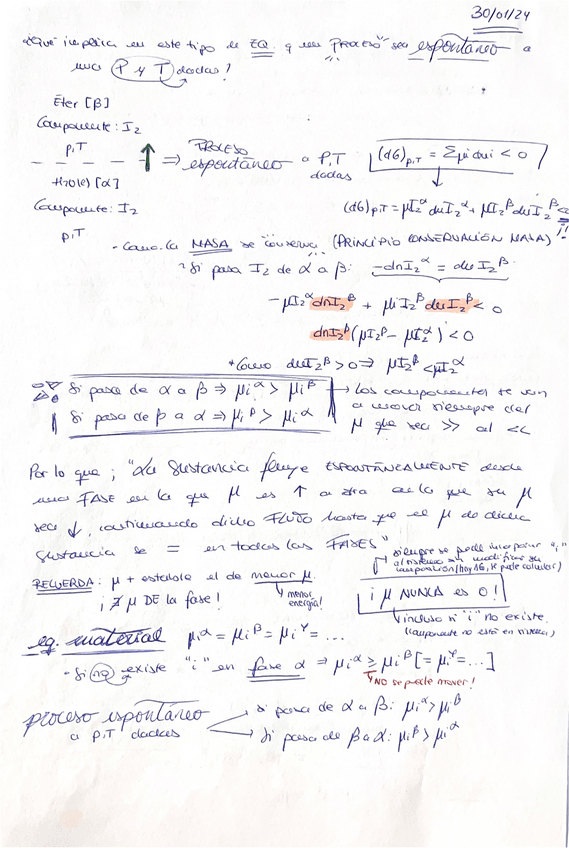 30/01/24
¿Qué implica en este tipo de EQ. q un "PROCESO" sea espontáneo a
una P y T dadas?
Éter [β]
Componente: I₂
P,T
H₂O(l) [α]
Componente: I₂
P,T
⇒ PROCESO espontáneo a P,T dadas
(dG)p,T = Σμi dni < 0
(dG)p,T = μI₂^α dnI₂^α + μI₂^β dnI₂^β <0
- Como la MASA se "conserva" (PRINCIPIO CONSERVACIÓN MASA)
- Si pasa I₂ de α a β: -dnI₂^α = dnI₂^β
-μI₂^α dnI₂^β + μI₂^β dnI₂^β < 0
dnI₂^β (μI₂^β - μI₂^α) < 0
*Como dnI₂^β > 0 ⇒ μI₂^β < μI₂^α
Si pasa de α a β ⇒ μi^α > μi^β
Si pasa de β a α ⇒ μi^β > μi^α
→ Los componentes se van
a mover siempre del
μ que sea >> al <<
Por lo que; "La sustancia fluye ESPONTÁNEAMENTE desde
una FASE en la que μ es ↑ a otra en la que su μ
sea ↓, continuando dicho FLUJO hasta que el μ de dicha
sustancia se = en todas las FASES"
RECUERDA: μ + estable el de menor μ.
menor energía!
¡∄ μ DE la fase!
siempre se puede incorporar "i"
al sistema sin modificar su
composición (hay ΔG, se puede calcular)
¡ μ NUNCA es 0!
incluso si "i" no existe.
(componente no está en sistema)
eq. material μi^α = μi^β = μi^γ = ...
- Si no existe "i" en fase α ⇒ μi^α ≥ μi^β [= μi^γ = ...]
NO se puede mover!
proceso espontáneo
a p,T dadas
si pasa de α a β: μi^α > μi^β
si pasa de β a α: μi^β > μi^α